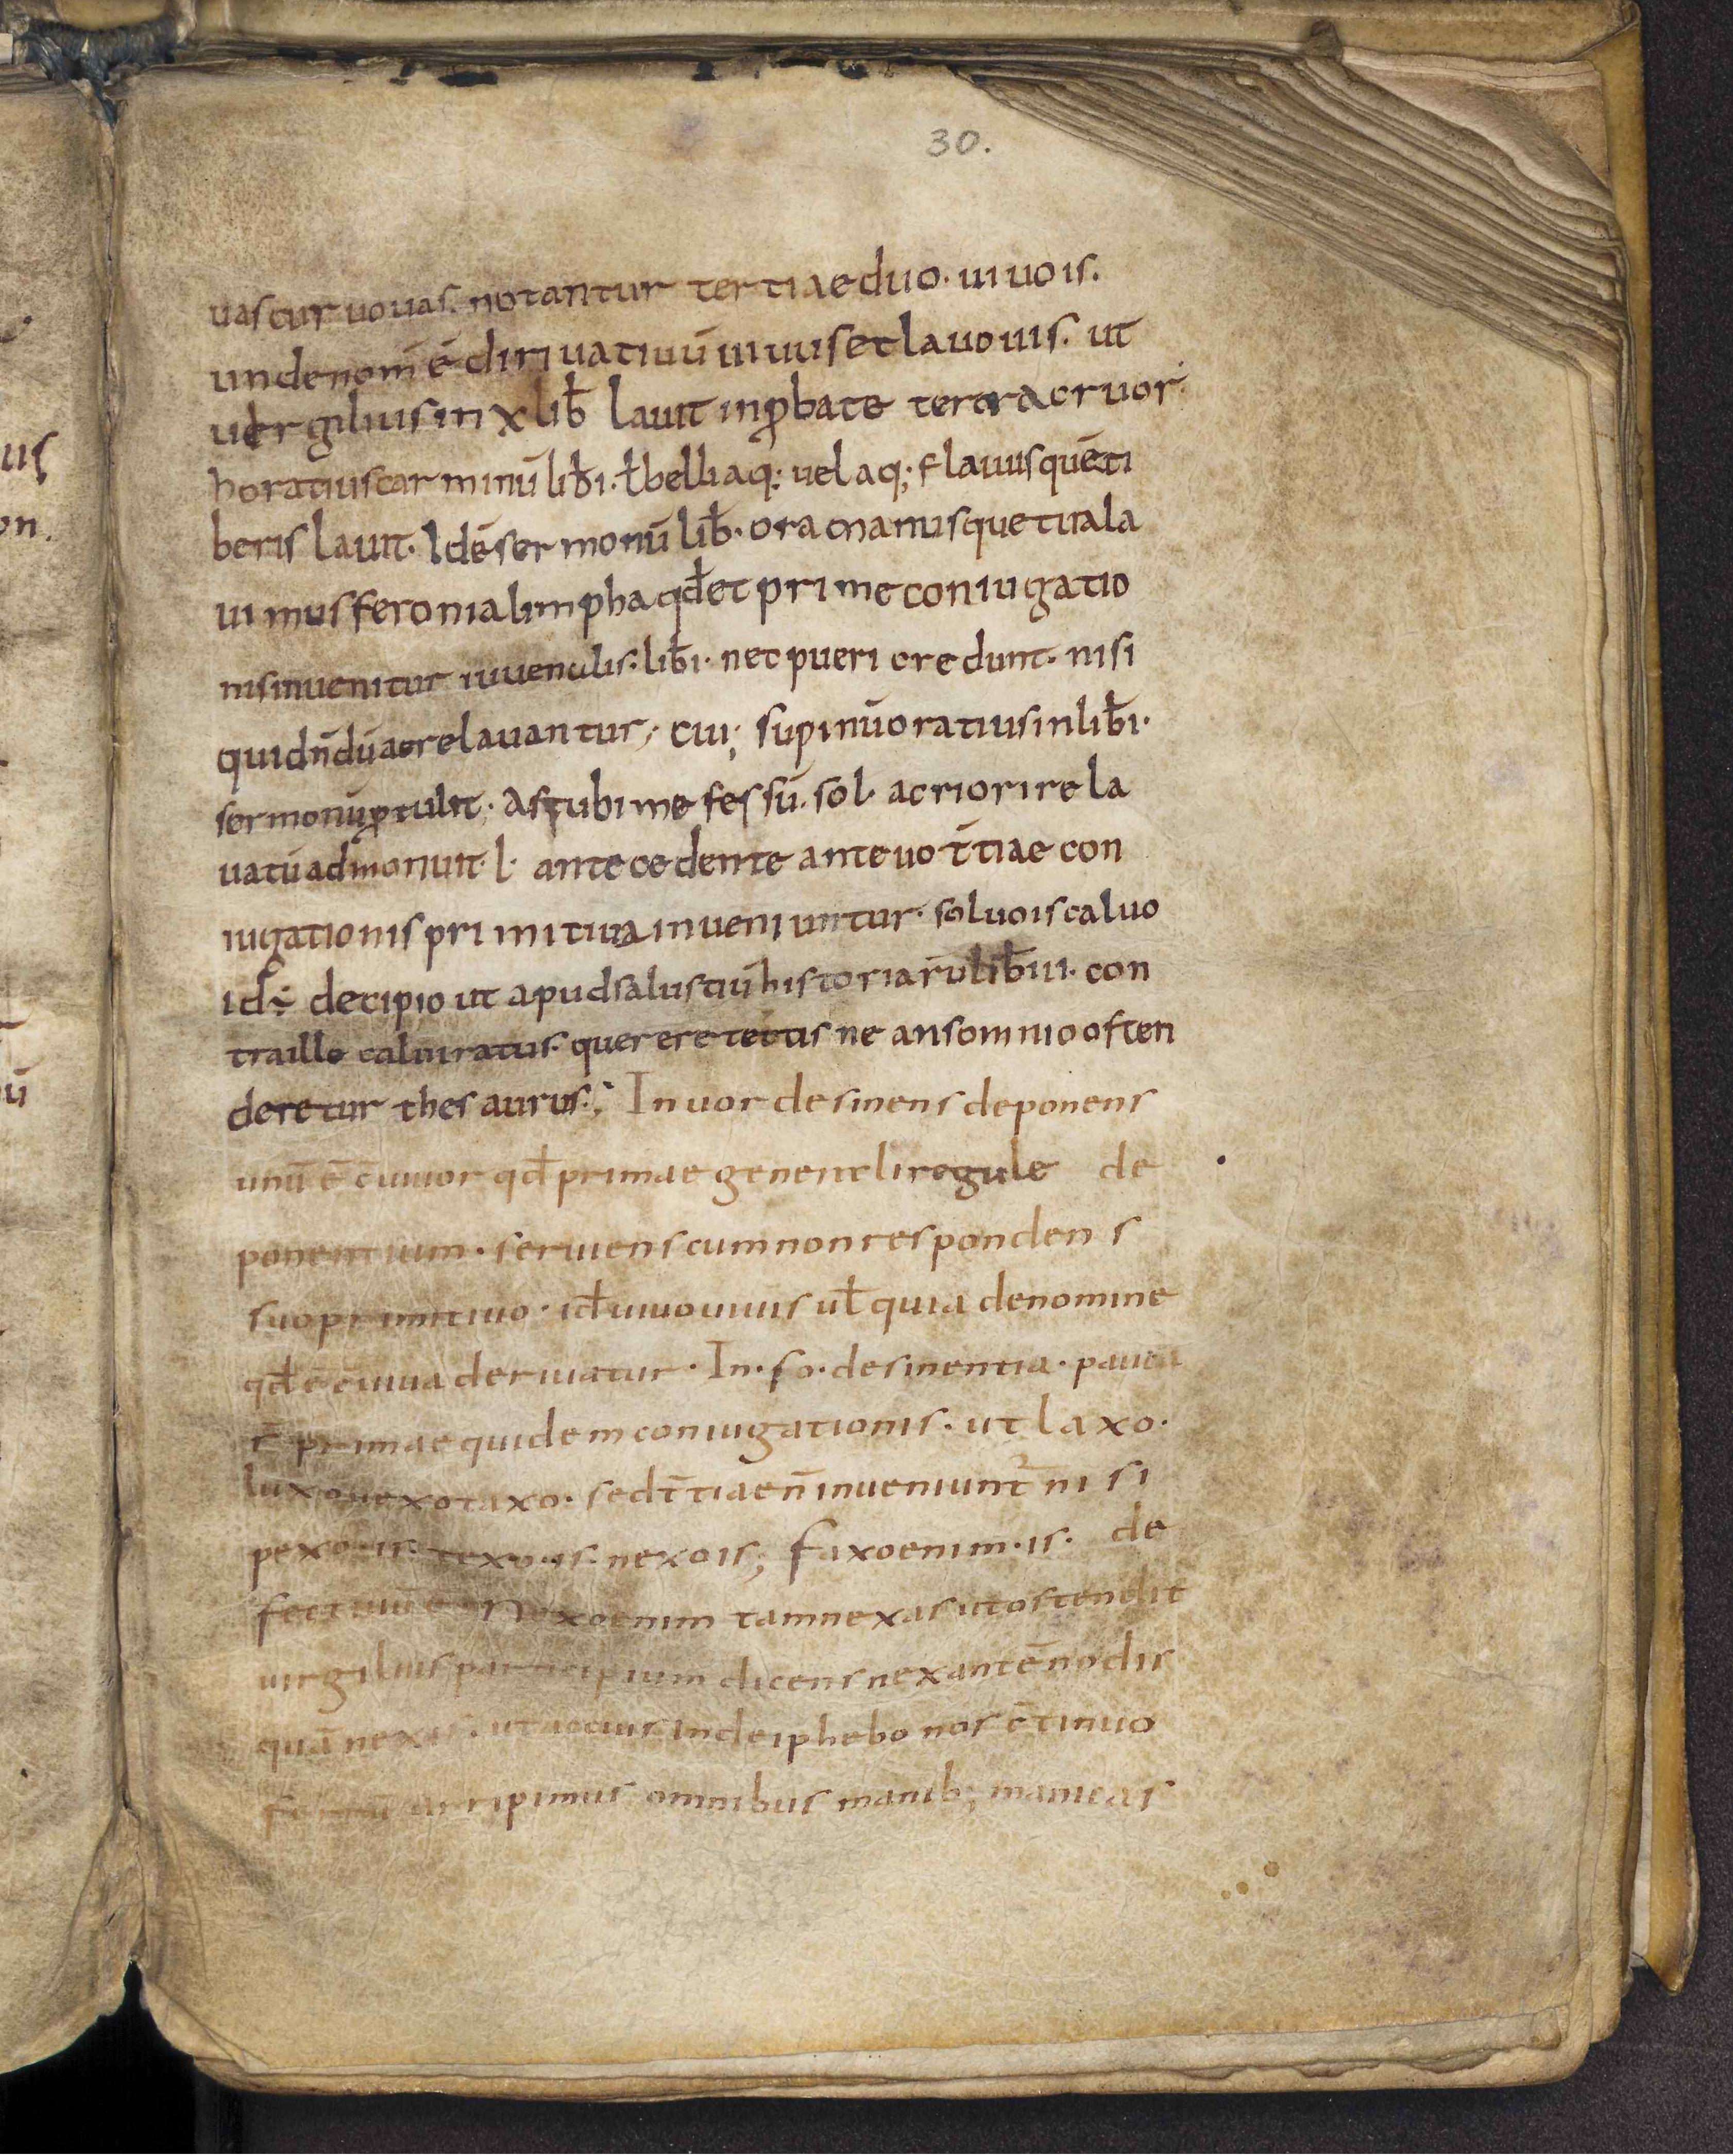 30.
uas cur uo uas. notantur tertiae duo. uiuo is.
unde nom̄ ē dirivatiuū uiuus et lauo uis. ut
uergilius in x lib̄ lauit inꝓbate tetra cruor.
horatius carminū lib̄ i. ł belli aq: uel aq; flauus quē ti
beris lauit. Idē sermonū lib̄. ora manusque tua la
uimus feronia limpha qđ et prime coniugatio
nis inuenitur iuuenalis. lib̄ i. nec pueri credunt. nisi
qui dn̄dū aere lauantur; cui; supinū oratius in lib̄ i.
sermonū ꝓtulit. Ast ubi me fessū. sol acrior ire la
uatū admonuit. l. antecedente ante uo t̄tiae con
iugationis primitiua inueniuntur. soluo is caluo
id÷ decipio ut apud salustiū historiarū lib̄ iii. con
tra ille caluiratus querere tectis ne an somnio osten
deretur thesaurus; In uor desinens deponens
unū ē c̄uiuor qđ primae generali regule de
ponentium. seruiens cum non respondens
suo primitiuo. iđ uiuo uiuis uł quia de nomine
qđ ē c̄uiua deriuatur. In. so. desinentia. pauca
s̄t primae quidem coniugationis. ut laxo.
luxo uexo taxo. sed t̄tiae n̄ inueniunt̄ nisi
pexo. is. texo. is. nexo is; faxo enim. is. de
fectiuū ē Nexo enim tam nexas ut ostendit
uirgilius participium dicens nexantē nodis
quā nexis. ut accius in deiphebo nos c̄tinuo
ferrū arripimus omnibus manib; manicas
us
on.
ū